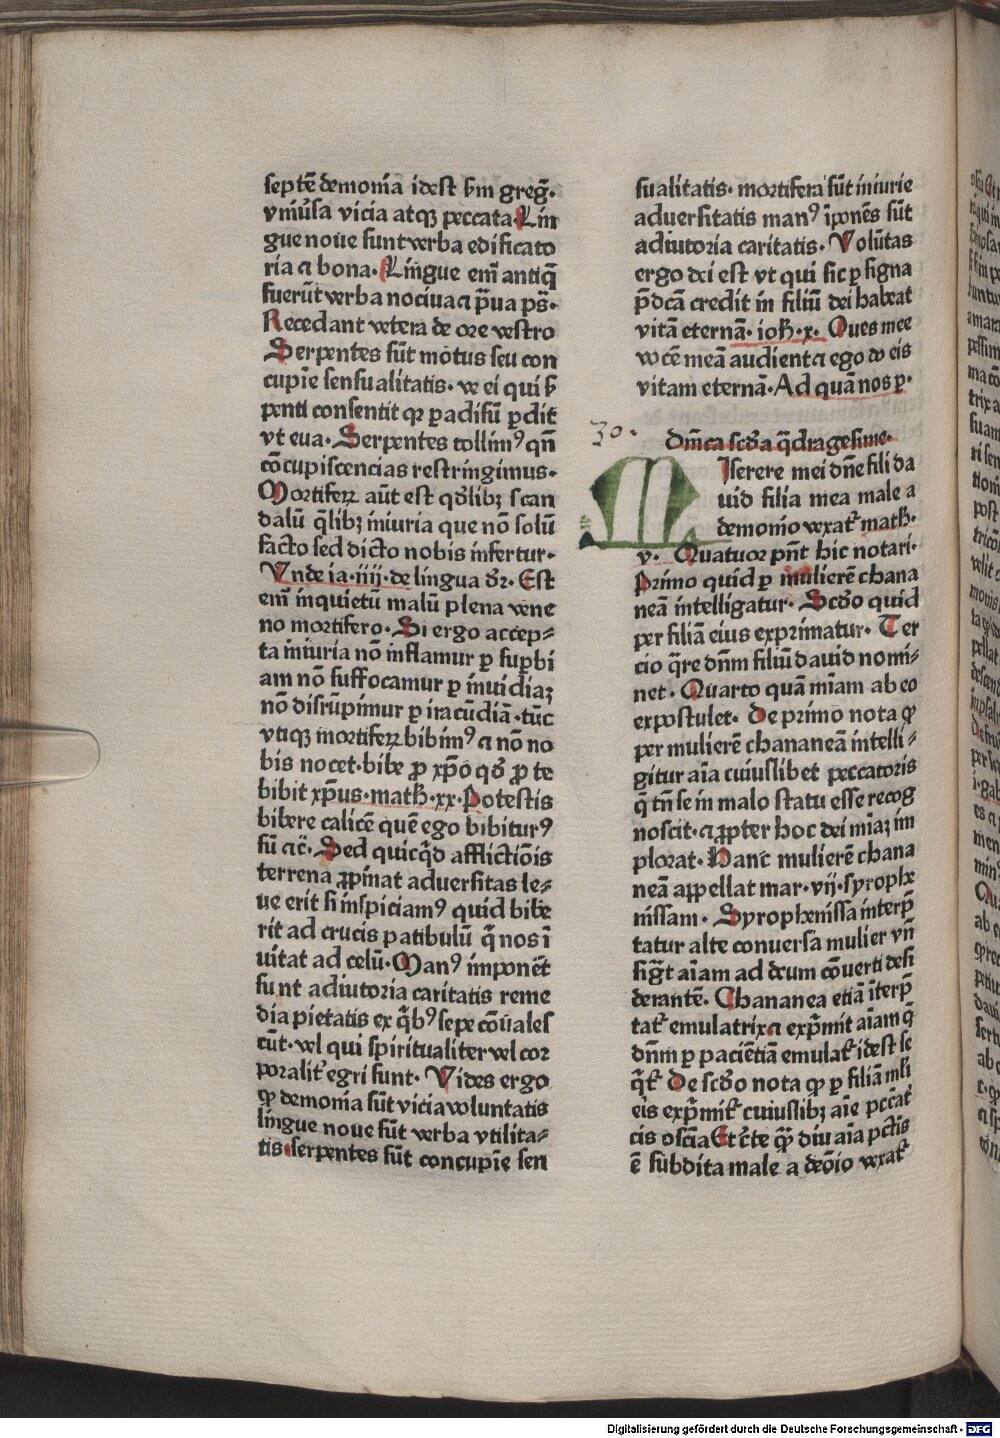 septē demonia idest ẜm gregꝝ̄.
vniūsa vicia atqꝫ peccata. Lin
gue noue sunt verba edificato
ria ⁊ bona. Lingue em̄ antiq̄
fuerūt verba nociua ⁊ p̄ua ps̄.
Recedant vetera de ore vestro
Serpentes sūt motus seu con
cupīe sensualitatis. ve ei qui ẜ
penti consentit qꝛ ꝑadisū ꝑdit
vt eua. Serpentes tollimꝰ qn̄
cōcupiscencias restringimus.
Mortiferꝝ aūt est qd̄libꝫ scan
dalū q̄libꝫ iniuria que nō solū
facto sed dicto nobis infertur.
Vnde ia. iiij. de lingua dr̄. Est
em̄ inquietū malū plena vene
no mortifero. Si ergo accep⸗
ta iniuria nō inflamur ꝑ suꝑbi
am nō suffocamur ꝑ inuidiaꝫ
nō disrūpimur ꝑ iracūdiā. tūc
vtiqꝫ mortiferꝝ bibimꝰ ⁊ nō no
bis nocet. bibe ꝓ xp̄o qd̄ ꝓ te
bibit xp̄us. math̄. xx. Potestis
bibere calicē quē ego bibiturꝰ
sū ⁊c̄. Sed quicq̄d afflictiōis
terrena ꝓpinat aduersitas le⸗
ue erit si inspiciamꝰ quid bibe
rit ad crucis patibulū q̄ nos ī
uitat ad celū. Manꝰ imponēt
sunt adiutoria caritatis reme
dia pietatis ex q̄bꝰ sepe cōuales
cūt. vel qui spiritualiter vel cor
poralit̄ egri sunt. Vides ergo
ꝙ demonia sūt vicia voluntatis
lingue noue sūt verba vtilita⸗
tis. serpentes sūt concupīe sen
sualitatis. mortifera sūt iniurie
aduersitatis manꝰ īponēs sūt
adiutoria caritatis. Volūtas
ergo dei est vt qui sic ꝑ signa
p̄dcā credit in filiū dei habeat
vitā eternā. ioh̄. x. Oues mee
vocē meā audient ⁊ ego do eis
vitam eternā. Ad quā nos ꝑ.
30.
Dn̄ica scd̄a q̄dragesime.
MIserere mei dn̄e fili da
uid filia mea male a
demonio vexat̄ math̄.
v. Quatuor pn̄t hic notari.
Primo quid ꝑ mulierē chana
neā intelligatur. Scd̄o quid
per filiā eius exprimatur. Ter
cio q̄re dn̄m filiū dauid nomi⸗
net. Quarto quā mīam ab eo
expostulet. De primo nota ꝙ
per mulierē chananeā intelli⸗
gitur aīa cuiuslibet peccatoris
q̄ tn̄ se in malo statu esse recog
noscit. ⁊ ꝓpter hoc dei mīaꝫ im
plorat. Hanc mulierē chana
neā appellat mar. vij. syrophe
nissam. Syrophenissa interp̄
tatur alte conuersa mulier vn̄
sigt̄ aīam ad deum cōuerti desi
derantē. Chananea etiā īterp̄
tat̄ emulatrix ⁊ exp̄mit aīam q̄
dn̄m ꝑ paciētiā emulat̄ idest se
q̄t̄ De scd̄o nota ꝙ ꝑ filiā mli
eis exp̄mit̄ cuiuslibꝫ aīe pccāt̄
cis oscīa Et c̄te q̄ꝫ diu aīa pctīs
ē subdita male a deōio vexat̄